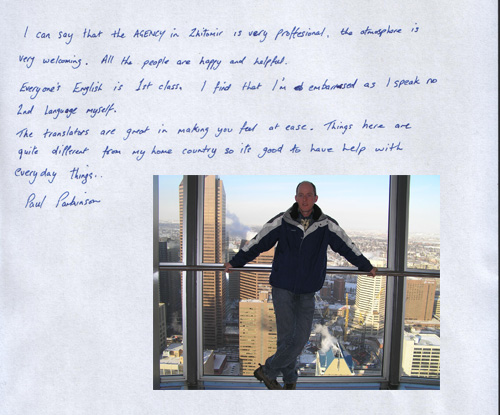 I can say that the AGENCY in Zhitomir is very proffesional, the atmosphere is
very welcoming. All the people are happy and helpful.
Everyone's English is 1st class. I find that I'm embarrased as I speak no
2nd language myself.
The translators are great in making you feel at ease. Things here are
quite different from my home country so its good to have help with
everyday things..
Paul Parkinson